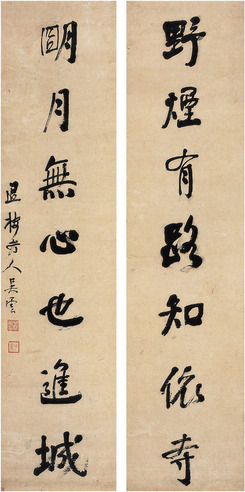 野煙有路知依寺
明月無心也進城
退樓老人吳雲